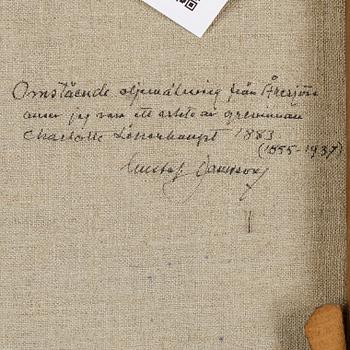 Omstående oljemålning från Åresjön
anser jag vara ett arbete av grevinnan
Charlotte Lewenhaupt 1883
(1855-1937)
Gustaf